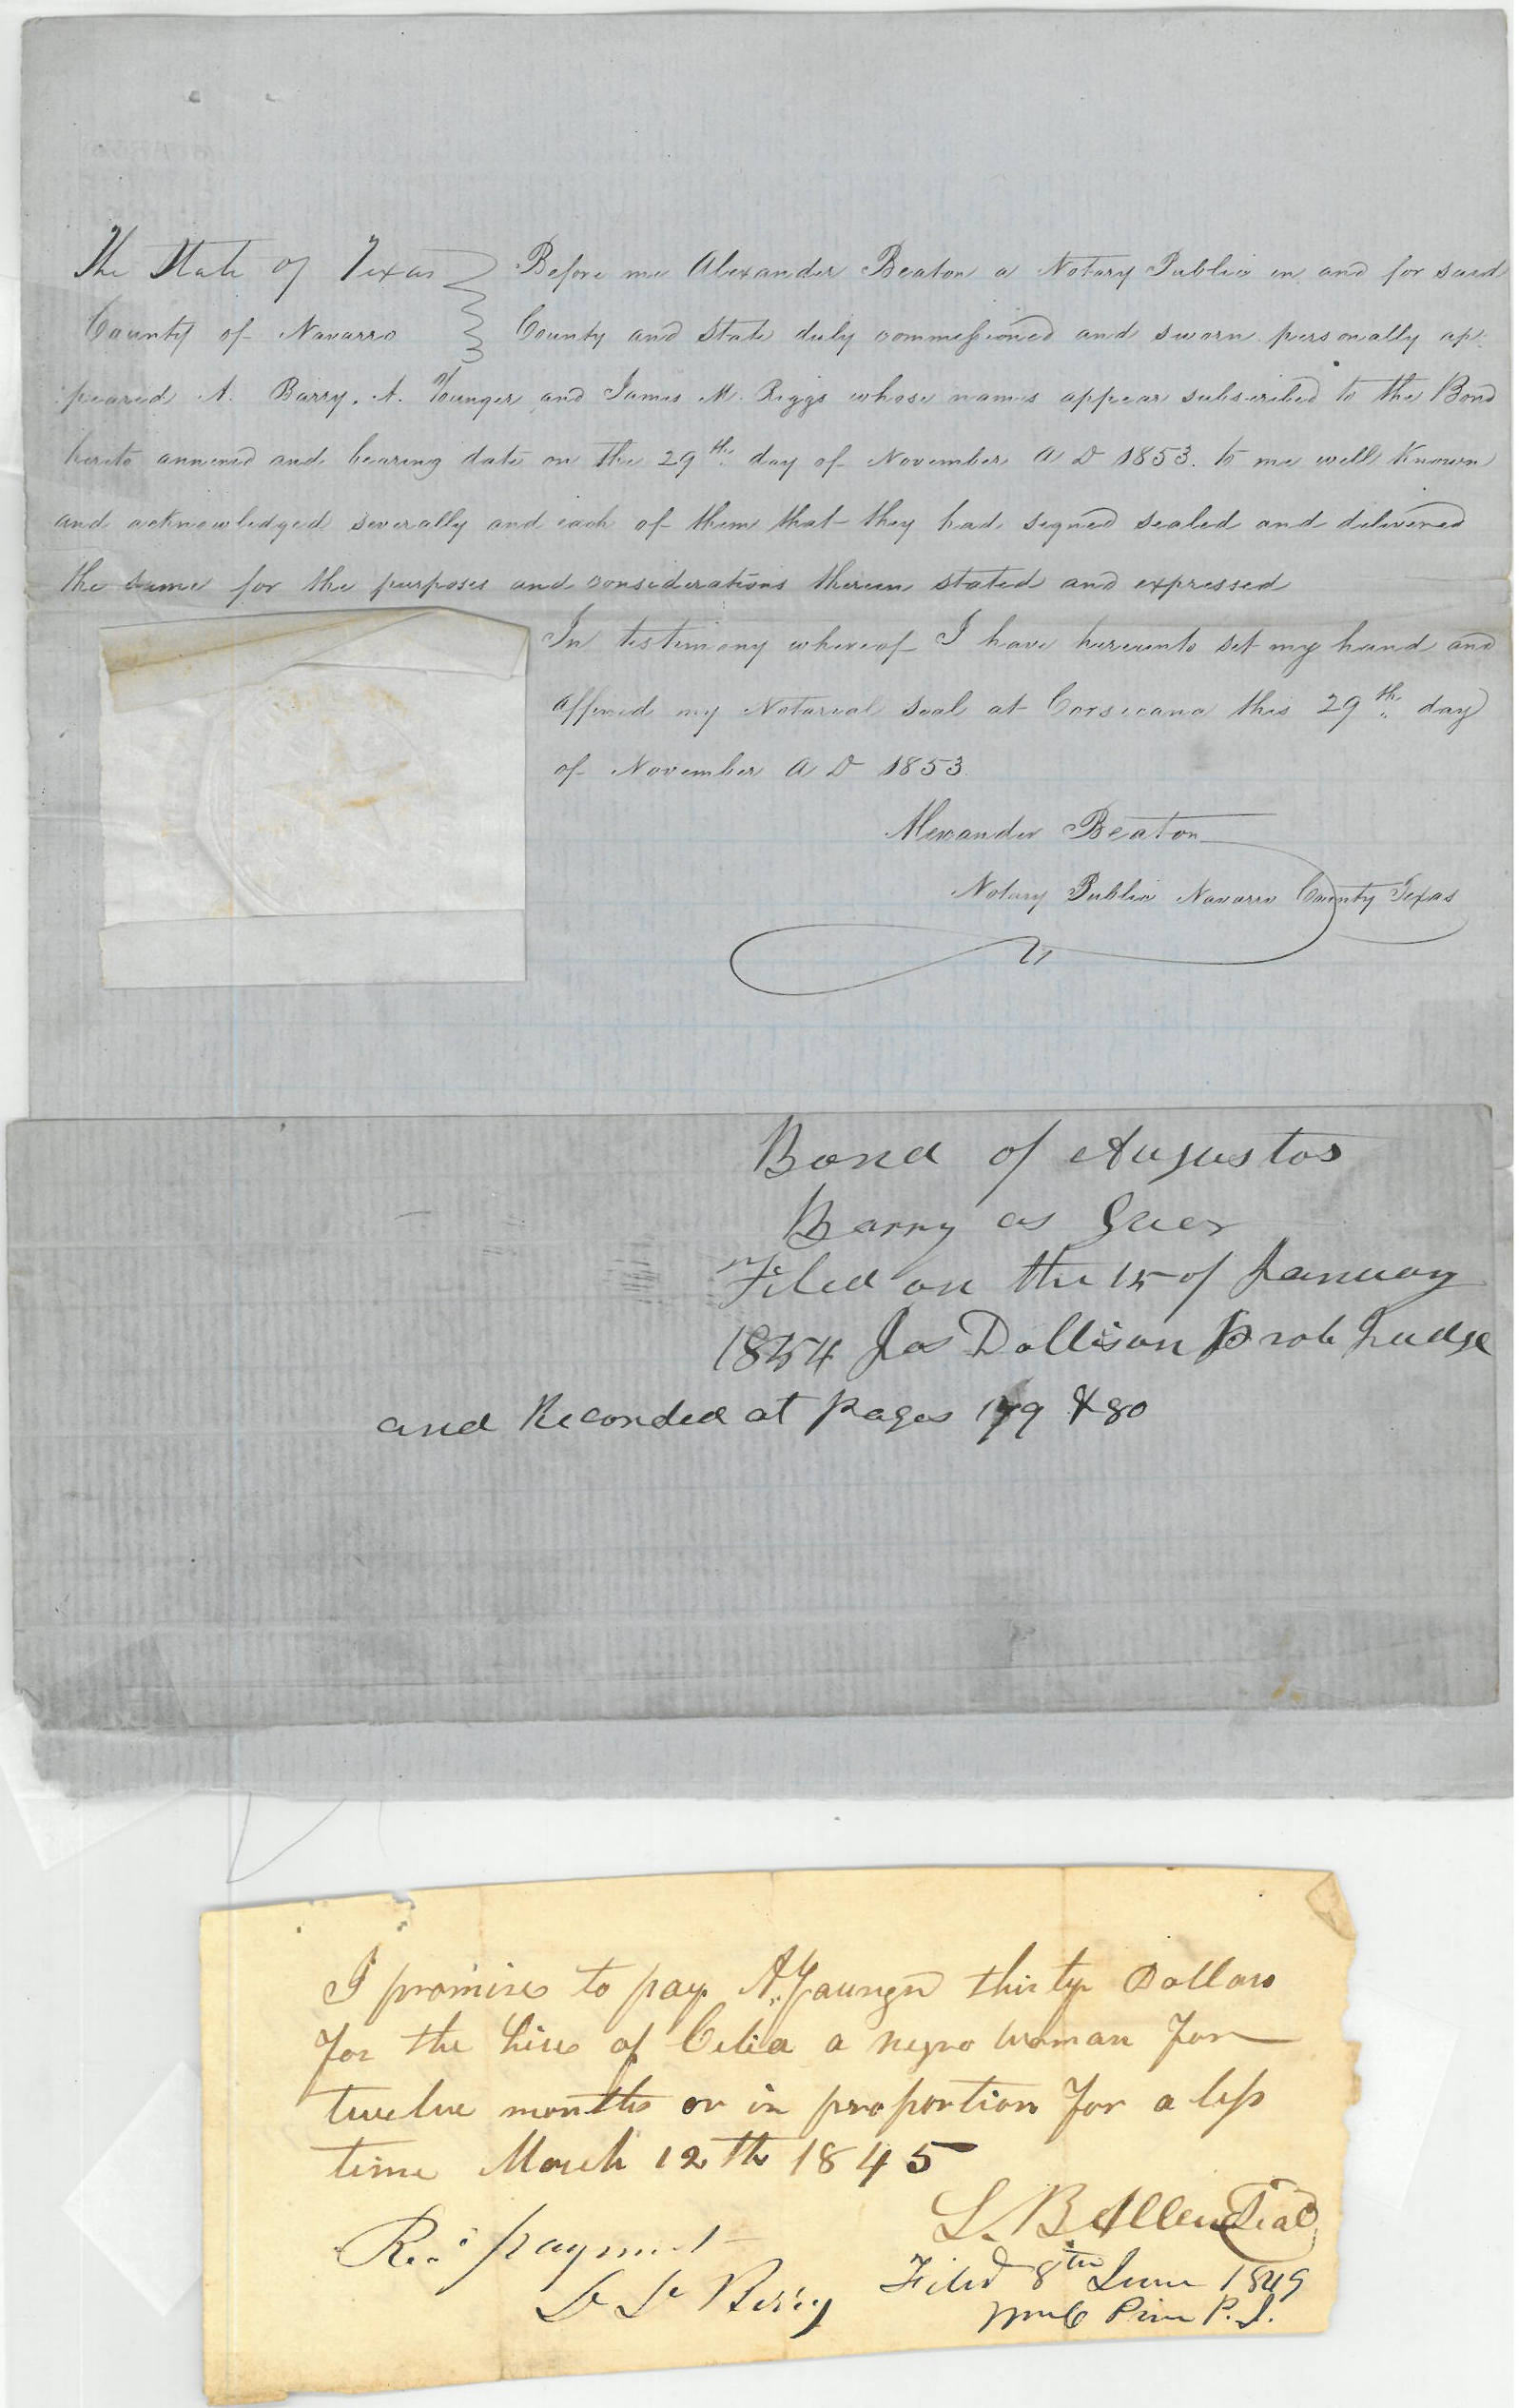 The State of Texas Before me Alexander Beaton a Notary Public in and for said
County of Navarro County and State duly commissioned and sworn personally ap-
peared A. Barry, A. Younger and James M. Riggs whose names appear subscribed to the Bond
hereto annexed and bearing date on the 29th day of November A D 1853. to me well known
and acknowledged severally and each of them that they had signed sealed and delivered
the same for the purposes and considerations therein stated and expressed
In testimony whereof I have hereunto set my hand and
affixed my Notarial seal at Corsicana this 29th day
of November A D 1853.
Alexander Beaton
Notary Public Navarro County Texas
Bond of Augustos
Barry as
Filed on the 15 of January
1854 Jas Dollison Prob Judge
and Recorded at pages 179 & 80
I promise to pay A. Youngr thirty Dollars
for the hire of Celia a negro woman for
twelve months or in proportion for a less
time March 12th 1845
L. B. Allen Seal
Recd payment
Filed 8th June 1849
Berry
P. J.